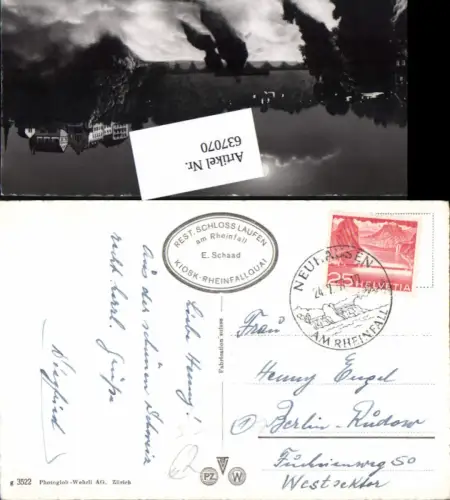 Artikel Nr.
637070
REST. SCHLOSS LAUFEN
am Rheinfall
E. Schaad
KIOSK-RHEINFALLQUAI
25 HELVETIA
NEUHAUSEN
AM RHEINFALL
Liebe Henny!
Aus der schönen Schweiz
recht herzl. Grüße
Siegfried
Fabrication suisse
Frau
Henny Engel
Berlin-Rudow
50
Westsektor
PZ W
3522 Photoglob-Wehrli AG., Zürich